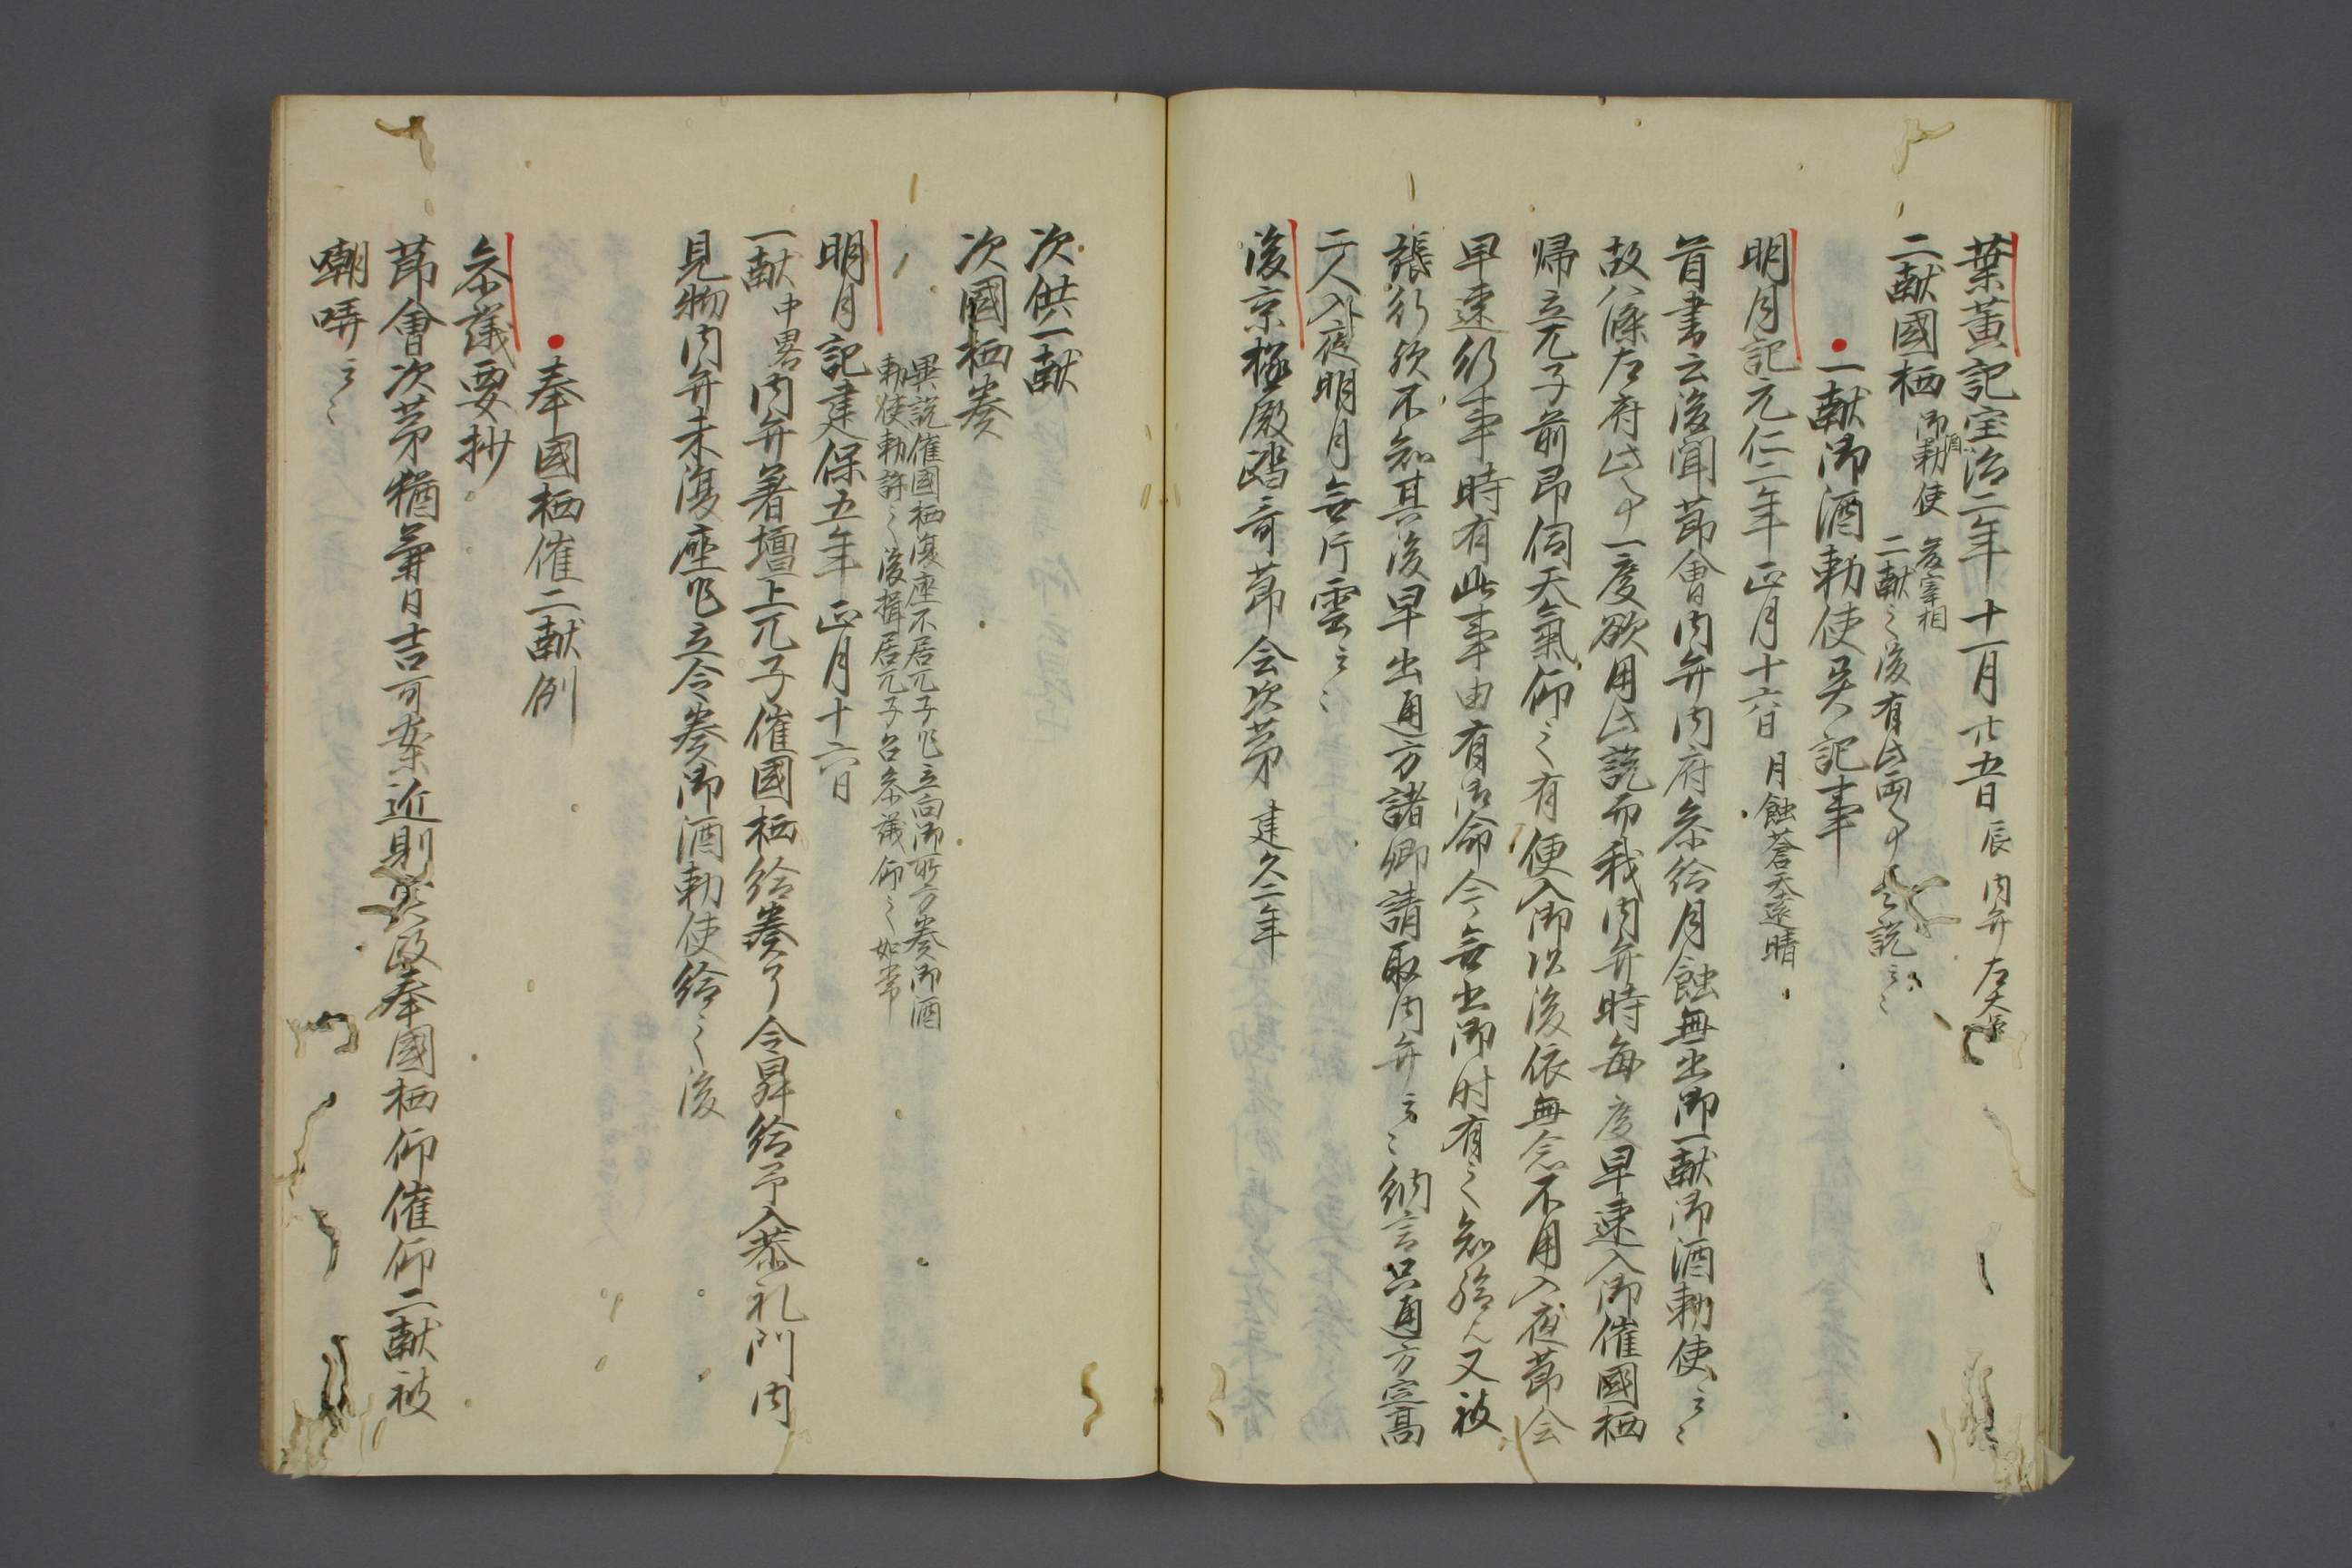 葉黄記宝治二年十一月廿五日辰 内弁左大臣
二献國栖 御酒勅使 二献之後有此両事
一献御酒勅使异記事
明月記元仁二年正月十六日 月蝕蒼天遠晴
首書云後聞節會内弁内府参給月蝕無出御一献御酒勅使云々
故八條左府此事一度欲用此説而我内弁時毎度早速入御催國栖
帰立兀子前即伺天氣仰之有便入御以後依無念不用入夜節会
早速行事時有此事由有御命今無出御时有之知給又被
張行欤不知其後早出通方諸卿請取内弁云々納言只通方定高
二人入夜明月無片雲云々
後京極殿踏哥節会次第 建久二年
次供一献
次國栖奏
異説催國栖復座不居兀子乍立向御所方奏御酒
勅使勅許之後揖居兀子召参議仰之如常
明月記建保五年正月十六日
一献中畧内弁着壇上兀子催國栖給奏了令昇給予入恭礼門内
見物内弁未復座乍立令奏御酒勅使給之後
奉國栖催二献例
参議要抄
節會次第猶兼日吉可案近則 奉國栖仰催仰二献被
嘲哢云々